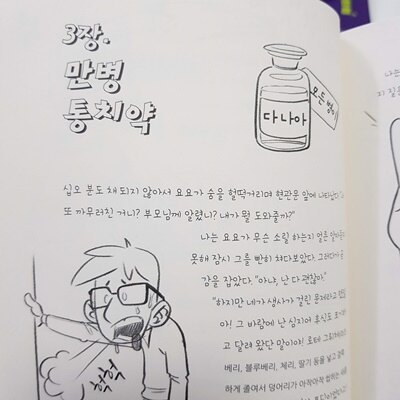 3장.
만병
통치약
모든 병이
다나아
십오 분도 채 되지 않아서 요요가 숨을 헐떡거리며 현관문 앞에 나타났다.
또 까무러친 거니? 부모님께 알렸니? 내가 뭘 도와줄까?"
나는 요요가 무슨 소릴 하는지 얼른
못해 잠시 그를 빤히 쳐다보았다. 그러다가
감을 잡았다. "아냐, 난 다 괜찮아."
"하지만 네가 생사가 걸린 문제라고
야! 그 바람에 난 심지어 후식도
고 달려 왔단 말이야!
베리, 블루베리, 체리, 딸기 등을 넣고
하게 졸여서 덩어리가 아작아작 씹히는
헉헉
나는
지 질문